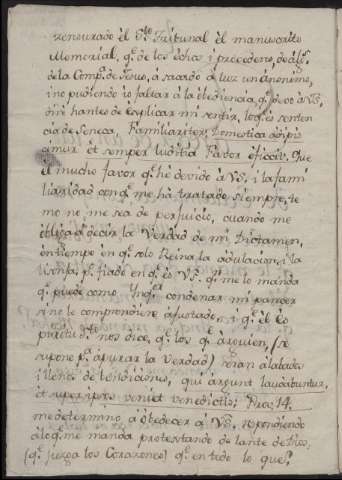 renovado el S.to Tribunal el manuscrito
Memorial, q.e de los echos i procederes,
de la Comp.a de Jesus, a sacado a luz un anonimo,
i no pudiendo io faltar a la obediencia, q.e devo a V.S.
diré hantes de explicar mi sentir, lo q.e es senten
cia de Seneca, Familiariter, Domestica
et semper Favor Que
el mucho favor q.e hé devido a V.S. i la fami
liaridad con q.e me há tratado siempre, te
mo no me sea de perjuicio, cuando me
obliga a decir la Verdad de mi Dictamen,
en tiempo en q.e solo Reina la adulacion, i la
fiado en q.e es V.S. q.n me lo manda
q.e puede como condenar mi parecer
si no le comprendiere ajustado, i q.e el Eo
nos dice, q.e los q.e arguien, (se
supone p.a apurar la Verdad) seran alabados
i llenos de bendiciones, qui arguunt laudabuntur,
et super ipsos veniet benedictio; Prov. 14.
me determino a obedecer a V.S. respondiendo
a lo q.e me manda protestando delante de Dios,
(q.e juzga los Corazones) q.e en todo lo que